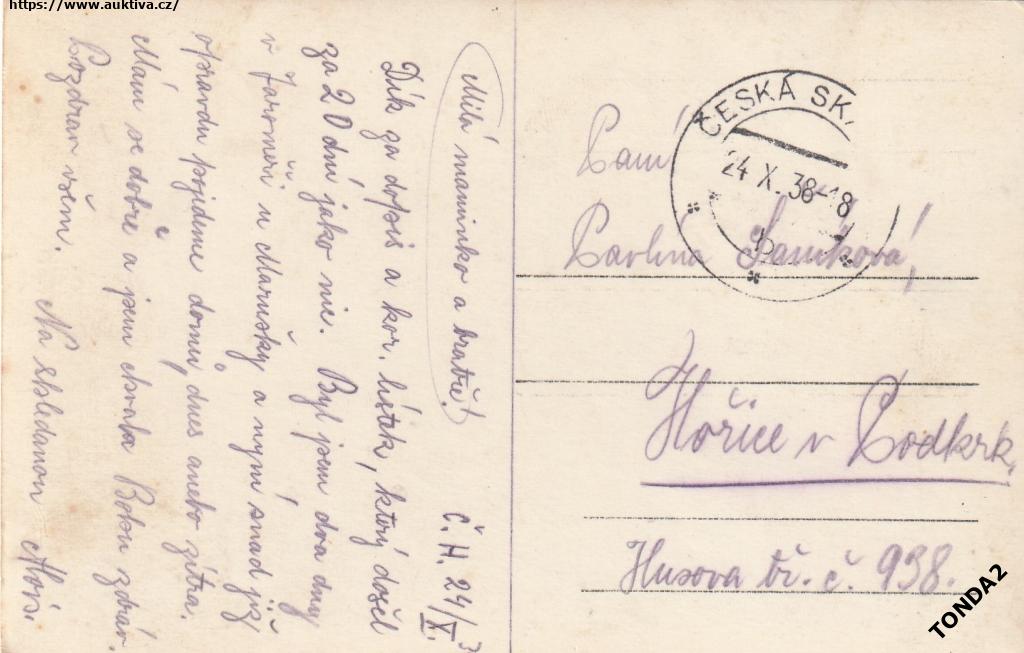 https://www.auktiva.cz/
Č. H. 24/X. 3
Milá maminko a bratře!
Dík za dopis a kor. lístek, který došel
za 20 dní jako nic. Byl jsem dva dny
v Jaroměři u Marušky a nyní snad již
opravdu pojedeme domů, dnes anebo zítra.
Mám se dobře a jsem chvala Bohu zdráv.
Pozdrav všem. Na shledanou Alois.
ČESKÁ SK
24 X. 38-18
Paní
Pavlína
Hořice v Podkrk.
Husova tř. č. 938.
TONDA2